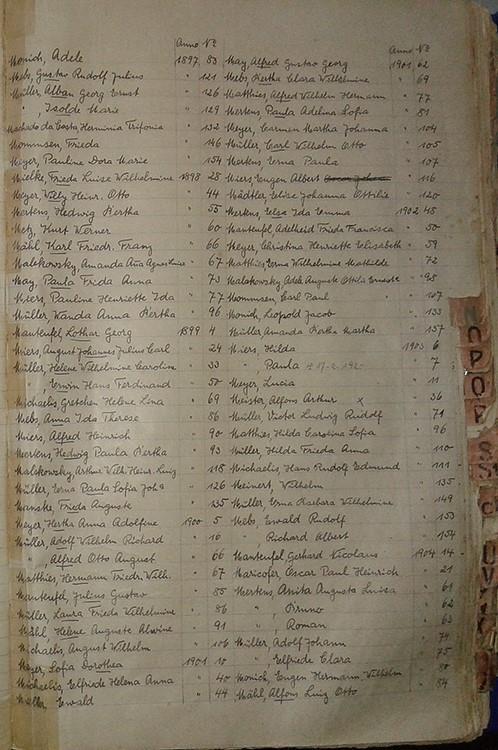 Anno No
Monich, Adele 1897 83
Mebs, Gustav Rudolf Julius " 121
Müller, Alban Georg Ernst " 126
" , Isolde Marie " 129
Machado da Costa Herminia Trifonia " 132
Mommsen, Frieda " 146
Meyer, Pauline Dora Marie " 154
Mielke, Frieda Luise Wilhelmine 1898 28
Meyer, Willy Heinr. Otto " 44
Martens, Hedwig Bertha " 55
Metz, Kurt Werner " 60
Mähl, Karl Friedr. Franz " 66
Malakowsky, Amanda Luise " 67
May, Paula Frida Anna " 73
Miers, Pauline Henriette Ida " 77
Müller, Wanda Anna Bertha " 96
Manteufel, Lothar Georg 1899 4
Miers, August Johannes Julius Carl " 24
Müller, Helene Wilhelmine Caroline " 33
" , Erwin Hans Ferdinand " 50
Michaelis, Gretchen Helene Lina " 69
Mebs, Anna Ida Therese " 86
Miers, Alfred Heinrich " 90
Mertens, Hedwig Paula Bertha " 93
Malakowsky, Arthur Wilh. Heinr. " 118
Müller, Erna Paula Sofia " 126
Manske, Frieda Auguste " 135
Meyer, Hertha Anna Adolfine 1900 5
Müller, Adolf Wilhelm Richard " 16
" , Alfred Otto August " 66
Matthies, Hermann Friedr. Wilh. " 67
Manteufel, Julius Gustav " 85
Müller, Laura Frieda Wilhelmine " 86
Mähl, Helene Auguste Alwine " 91
Michaelis, August Wilhelm " 106
Meyer, Sofia Dorothea 1901 10
Michaelis, Elfriede Helena Anna " 40
Müller Ewald " 44
Anno No
May, Alfred Gustav Georg 1901 62
Mebs, Bertha Clara Wilhelmine " 69
Matthies, Alfred Wilhelm Hermann " 77
Mertens, Paula Adelina Sofia " 81
Meyer, Carmen Martha Johanna " 104
Müller, Carl Wilhelm Otto " 105
Mertens, Erna Paula " 107
Miers, Eugen Albert " 116
Mädtler, Elise Johanna Ottilie " 120
Mertens, Elsa Ida Emma 1902 48
Manteufel, Adelheid Frieda Francisca " 50
Meyer, Christina Henriette Elisabeth " 59
Matthies, Erna Wilhelmine Mathilde " 72
Malakowsky, Adele Auguste Ottilie " 98
Mommsen, Carl Paul " 107
Monich, Leopold Jacob " 133
Müller, Amanda Bertha Martha " 157
Miers, Hilda 1903 6
" , Paula " 7
Meyer, Lucia " 11
Meister, Alfons Arthur x " 36
Müller, Victor Ludwig Rudolf " 71
Matthies, Hilda Carolina Sofia " 96
Müller, Hilda Frieda Anna " 110
Michaelis, Hans Rudolf Edmund " 111
Meinert, Wilhelm " 135
Müller, Erna Barbara Wilhelmine " 149
Mebs, Ewald Rudolf " 153
" , Richard Albert " 154
Manteufel, Gerhard Nicolaus 1904 14
Maricofer, Oscar Paul Heinrich " 21
Mertens, Anita Augusta Luisa " 61
" , Bruno " 62
" , Roman " 63
Müller, Adolf Johann " 74
" , Elfriede Clara " 75
Monich, Eugen Hermann Wilhelm " 80
Mähl, Alfons Luiz Otto " 84
O
P